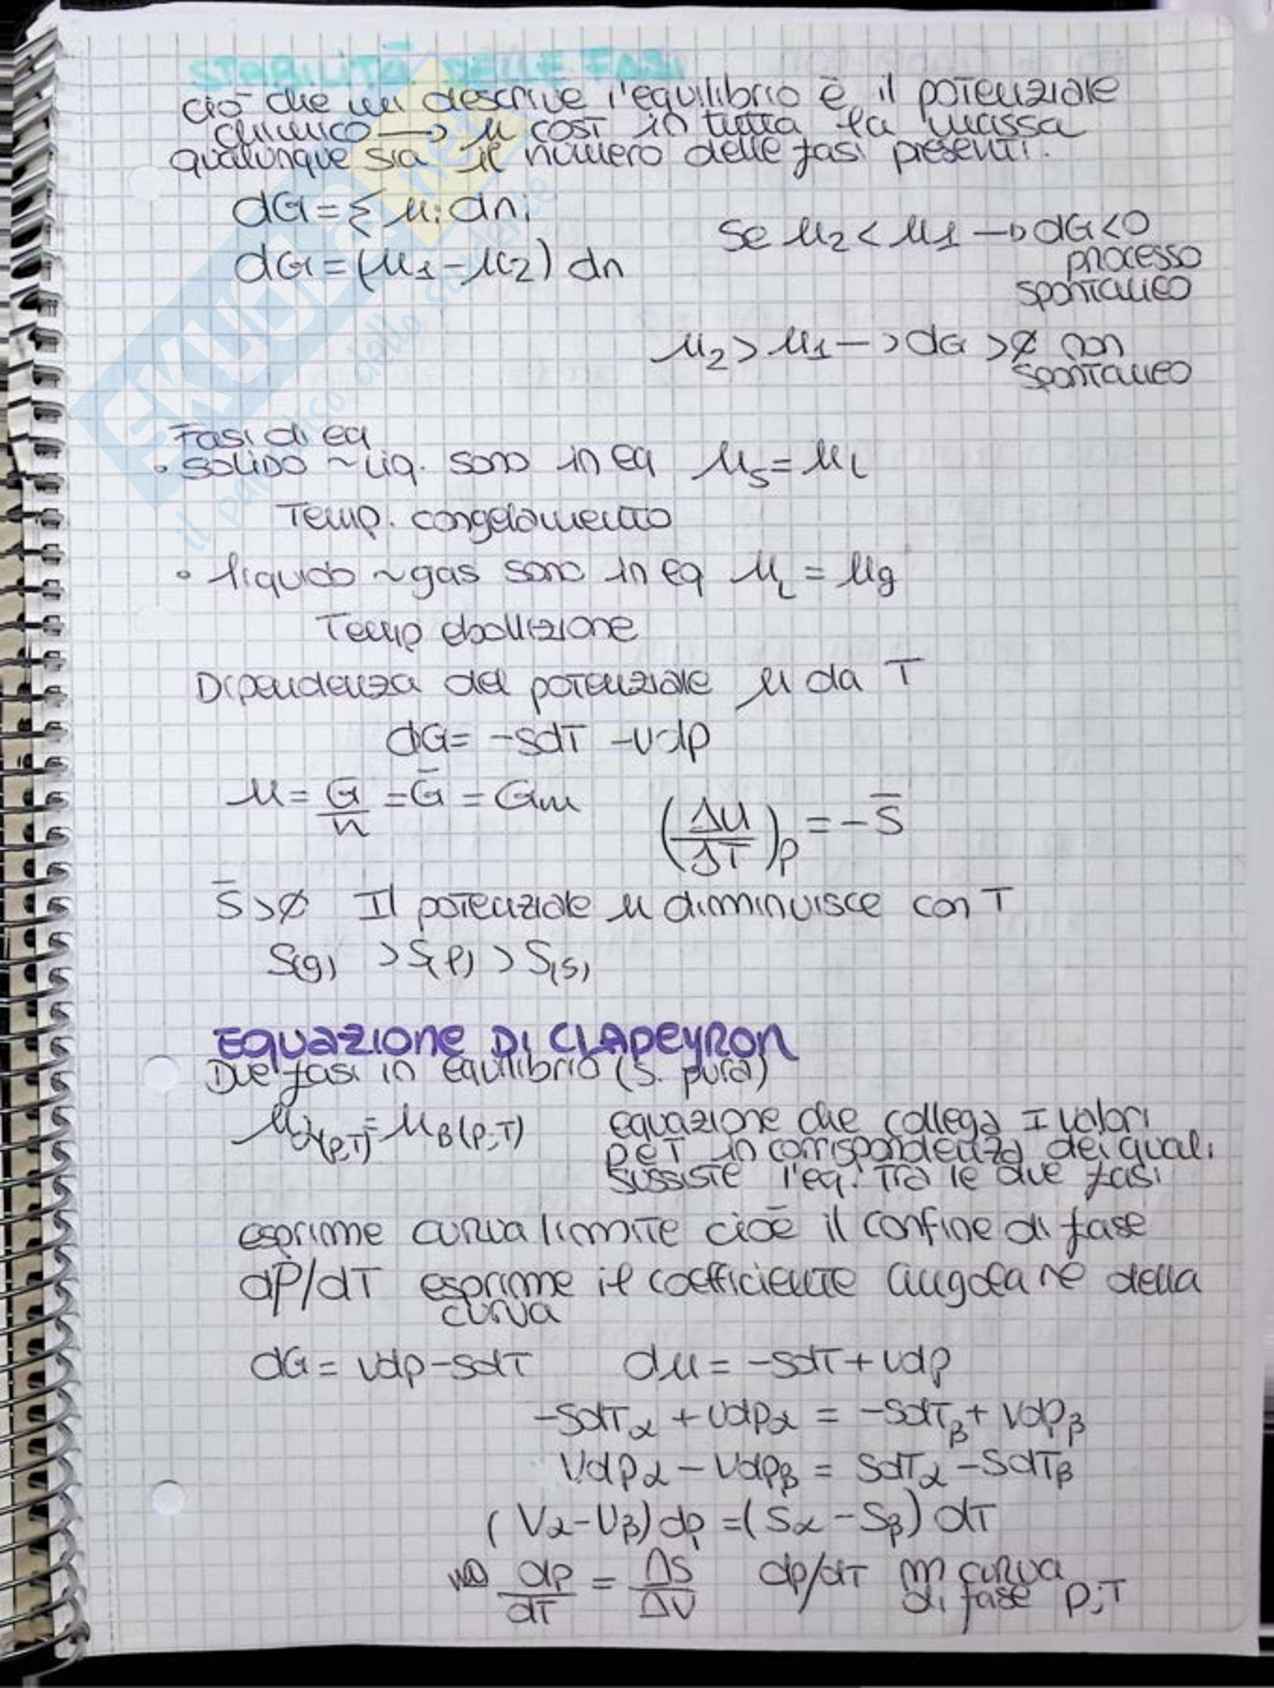 STABILITÀ DELLE FASI
ciò che mi descrive l'equilibrio è il potenziale
chimico → μ cost in tutta la massa
qualunque sia il numero delle fasi presenti.
dG = Σ μi dni
dG = (μ1 - μ2) dn
Se μ2 < μ1 → dG < 0
processo
spontaneo
μ2 > μ1 → dG > ∅ non
spontaneo
Fasi di eq
• SOLIDO ~ Liq. sono in eq μs = μL
Temp. congelamento
• liquido ~ gas sono in eq μL = μg
Temp ebollizione
Dipendenza del potenziale μ da T
dG = -SdT - Vdp
μ = G/n = G̅ = Gm
(Δμ/ΔT)p = - S̅
S̅ > ∅ Il potenziale μ dimminuisce con T
S(g) > S(l) > S(s)
EQUAZIONE DI CLAPEYRON
Due fasi in equilibrio (S. pura)
μα(p,T) = μβ(p;T)
equazione che collega I valori
p e T in corrispondenza dei quali
sussiste l'eq. Tra le due fasi
esprime curva limite cioè il confine di fase
dP/dT esprime il coefficiente angolare della
curva
dG = Vdp - SdT dμ = -SdT + Vdp
-SdTα + Vdpα = -SdTβ + Vdpβ
Vdpα - Vdpβ = SdTα - SdTβ
(Vα - Vβ) dp = (Sα - Sβ) dT
dp/dT = ΔS/ΔV dp/dT m curva
di fase p;T
SKUOLA.net
il paradiso dello studente